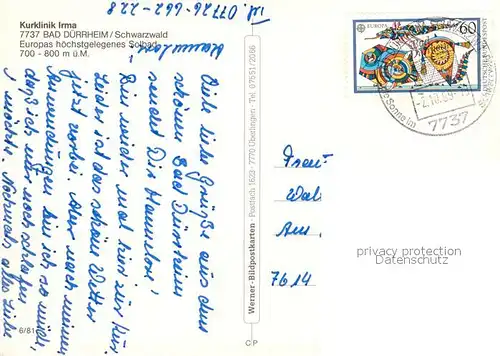 Tel. 07726-662-228
Kurklinik Irma
7737 BAD DÜRRHEIM / Schwarzwald
Europas höchstgelegenes Solbad
700 - 800 m ü.M.
Hannelore!
Viele liebe Grüße aus dem
schönen Bad Dürrheim
sendet Dir Hannelore!
Bin wieder mal hier zur Kur.
Leider ist das schöne Wetter
jetzt vorbei. Aber nach meinen
Anwendungen bin ich so müde,
daß ich nur noch schlafen
möchte. Nochmals alles Liebe
6/81
Werner-Bildpostkarten · Postfach 1623 · 7770 Überlingen · Tel. 07551/2066
CP
EUROPA
60
DEUTSCHE BUNDESPOST
7737
Frau
Wal
Am
7614
privacy protection
Datenschutz